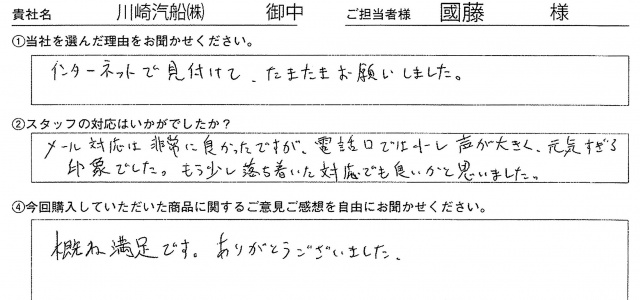 貴社名 川崎汽船㈱ 御中 ご担当者様 國藤 様
①当社を選んだ理由をお聞かせください。
インターネットで見付けて、たまたまお願いしました。
②スタッフの対応はいかがでしたか?
メール対応は非常に良かったですが、電話口では少し声が大きく、元気すぎる
印象でした。もう少し落ち着いた対応でも良いかと思いました。
④今回購入していただいた商品に関するご意見ご感想を自由にお聞かせください。
概ね満足です。ありがとうございました。